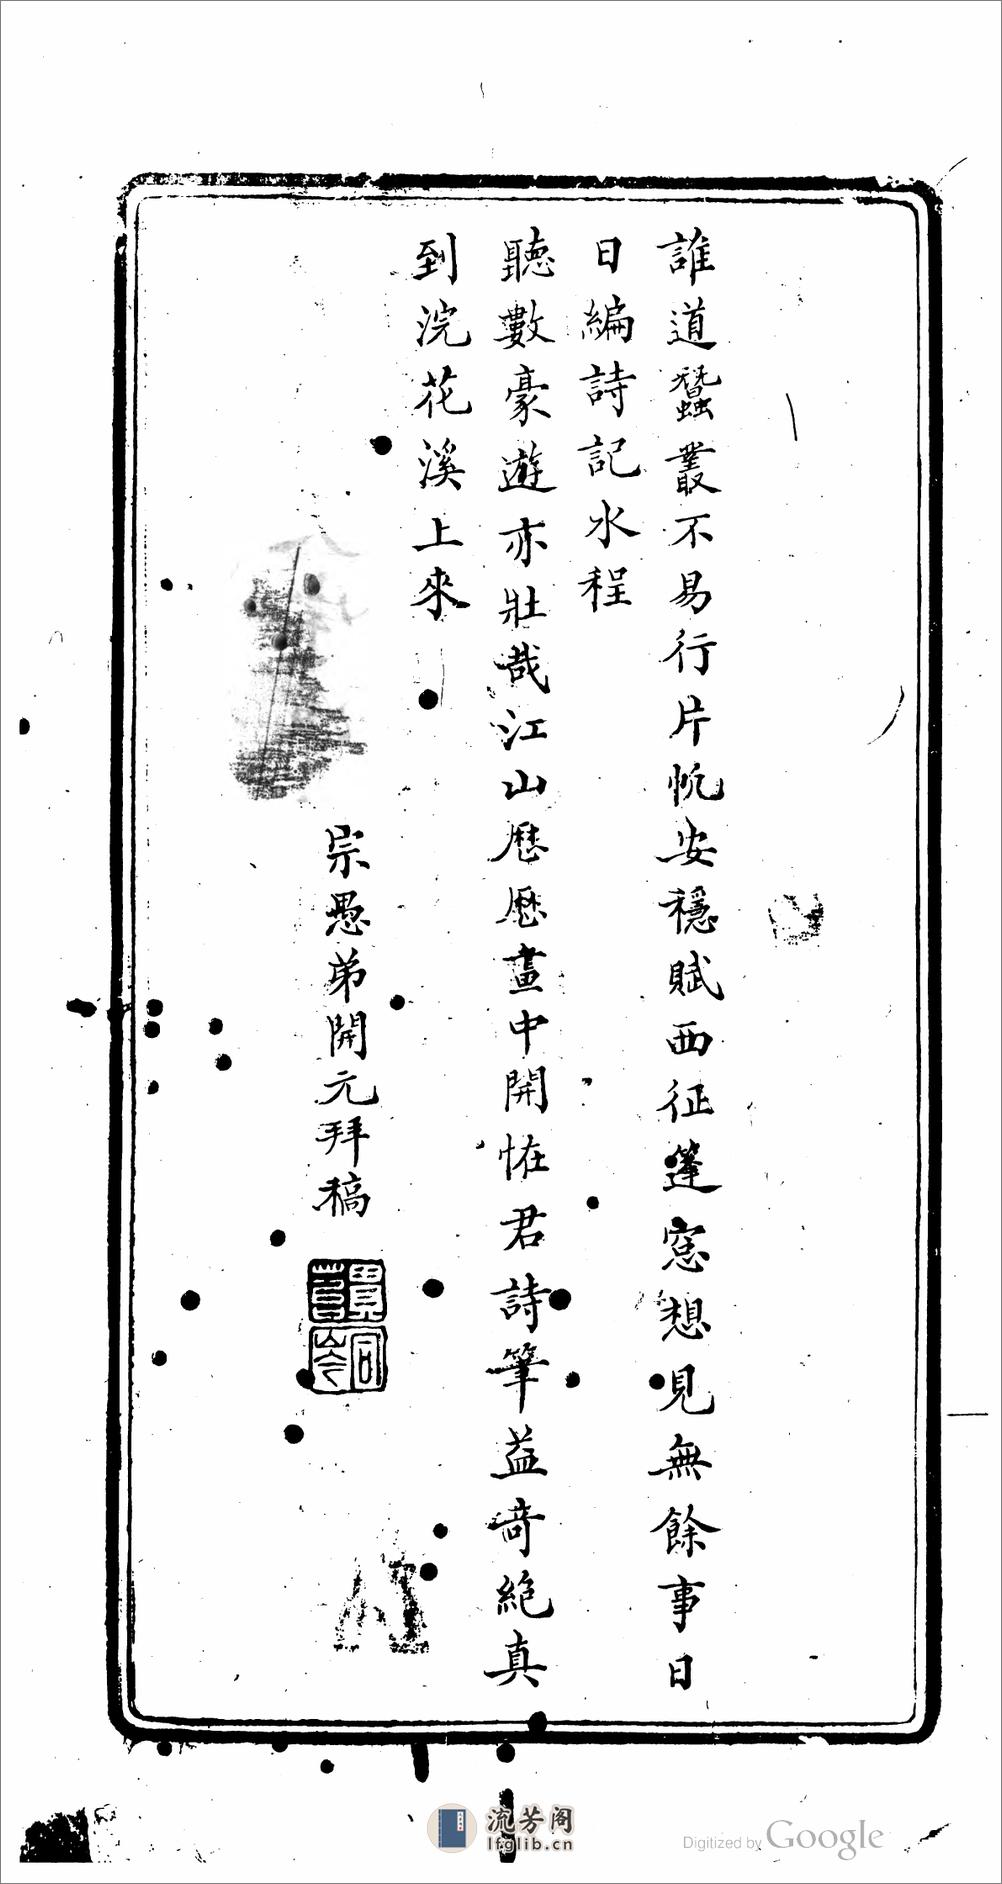 誰道蠶叢不易行片帆安穩賦西征篷窓想見無餘事日
日編詩記水程
聽數豪遊亦壯哉江山歷歷畫中開恠君詩筆益奇絕真
到浣花溪上來
宗愚弟開元拜稿
流芳阁
lfglib.cn
Digitized by Google